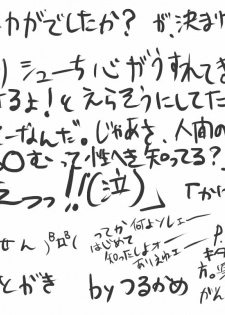 がでしたか？が、決ま
り シューち心がうすれてき
てるよ！とえらそうにしてた
ーなんだ。じゃあさ、人間の
〇むって性へき知ってる？
えっっ!!(泣)」「か
せん
ってか何よソレェー
はじめて
知ったしょォー
ありえねェー
P.
キタ
方。
がん
とがき byつるかめ